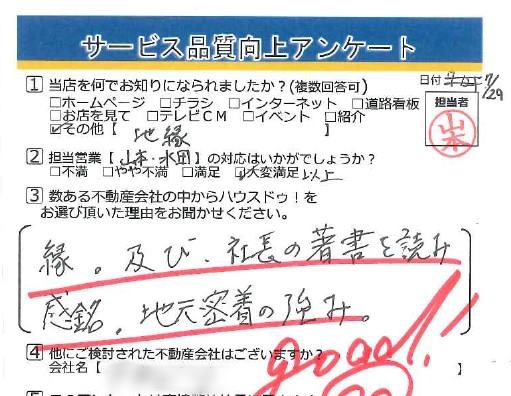 サービス品質向上アンケート
日付 7/29
1 当店を何でお知りになられましたか?(複数回答可)
□ホームページ □チラシ □インターネット □道路看板
□お店を見て □テレビCM □イベント □紹介
☑その他【 地縁 】
担当者
山本
2 担当営業【 山本・水田 】の対応はいかがでしょうか?
□不満 □やや不満 □満足 ☑大変満足 以上
3 数ある不動産会社の中からハウスドゥ!を
お選び頂いた理由をお聞かせください。
縁。及び、社長の著書を読み
感銘。地元密着の強み。
good!!
4 他にご検討された不動産会社はございますか?
会社名【 】